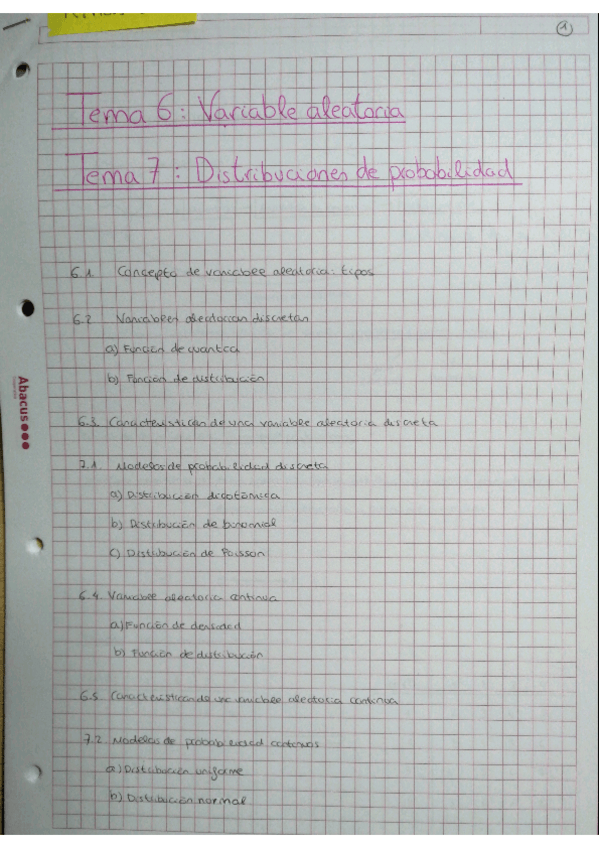 1
Tema 6: Variable aleatoria
Tema 7: Distribuciones de probabilidad
6.1 Concepto de variable aleatoria: tipos
6.2 Variables aleatorias discretas
a) Función de cuantía
b) Función de distribución
6.3. Características de una variable aleatoria discreta
7.1. Modelos de probabilidad discreta
a) Distribución dicotómica
b) Distribución de binomial
c) Distribución de Poisson
6.4. Variable aleatoria continua
a) Función de densidad
b) Función de distribución
6.5. Características de una variable aleatoria continua
7.2. Modelos de probabilidad continuos
a) Distribución uniforme
b) Distribución normal
Abacus